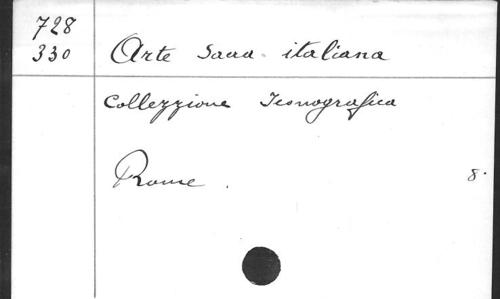 728
330 Arte Sacra italiana
Collezzione Iconografica
Rome. 8.